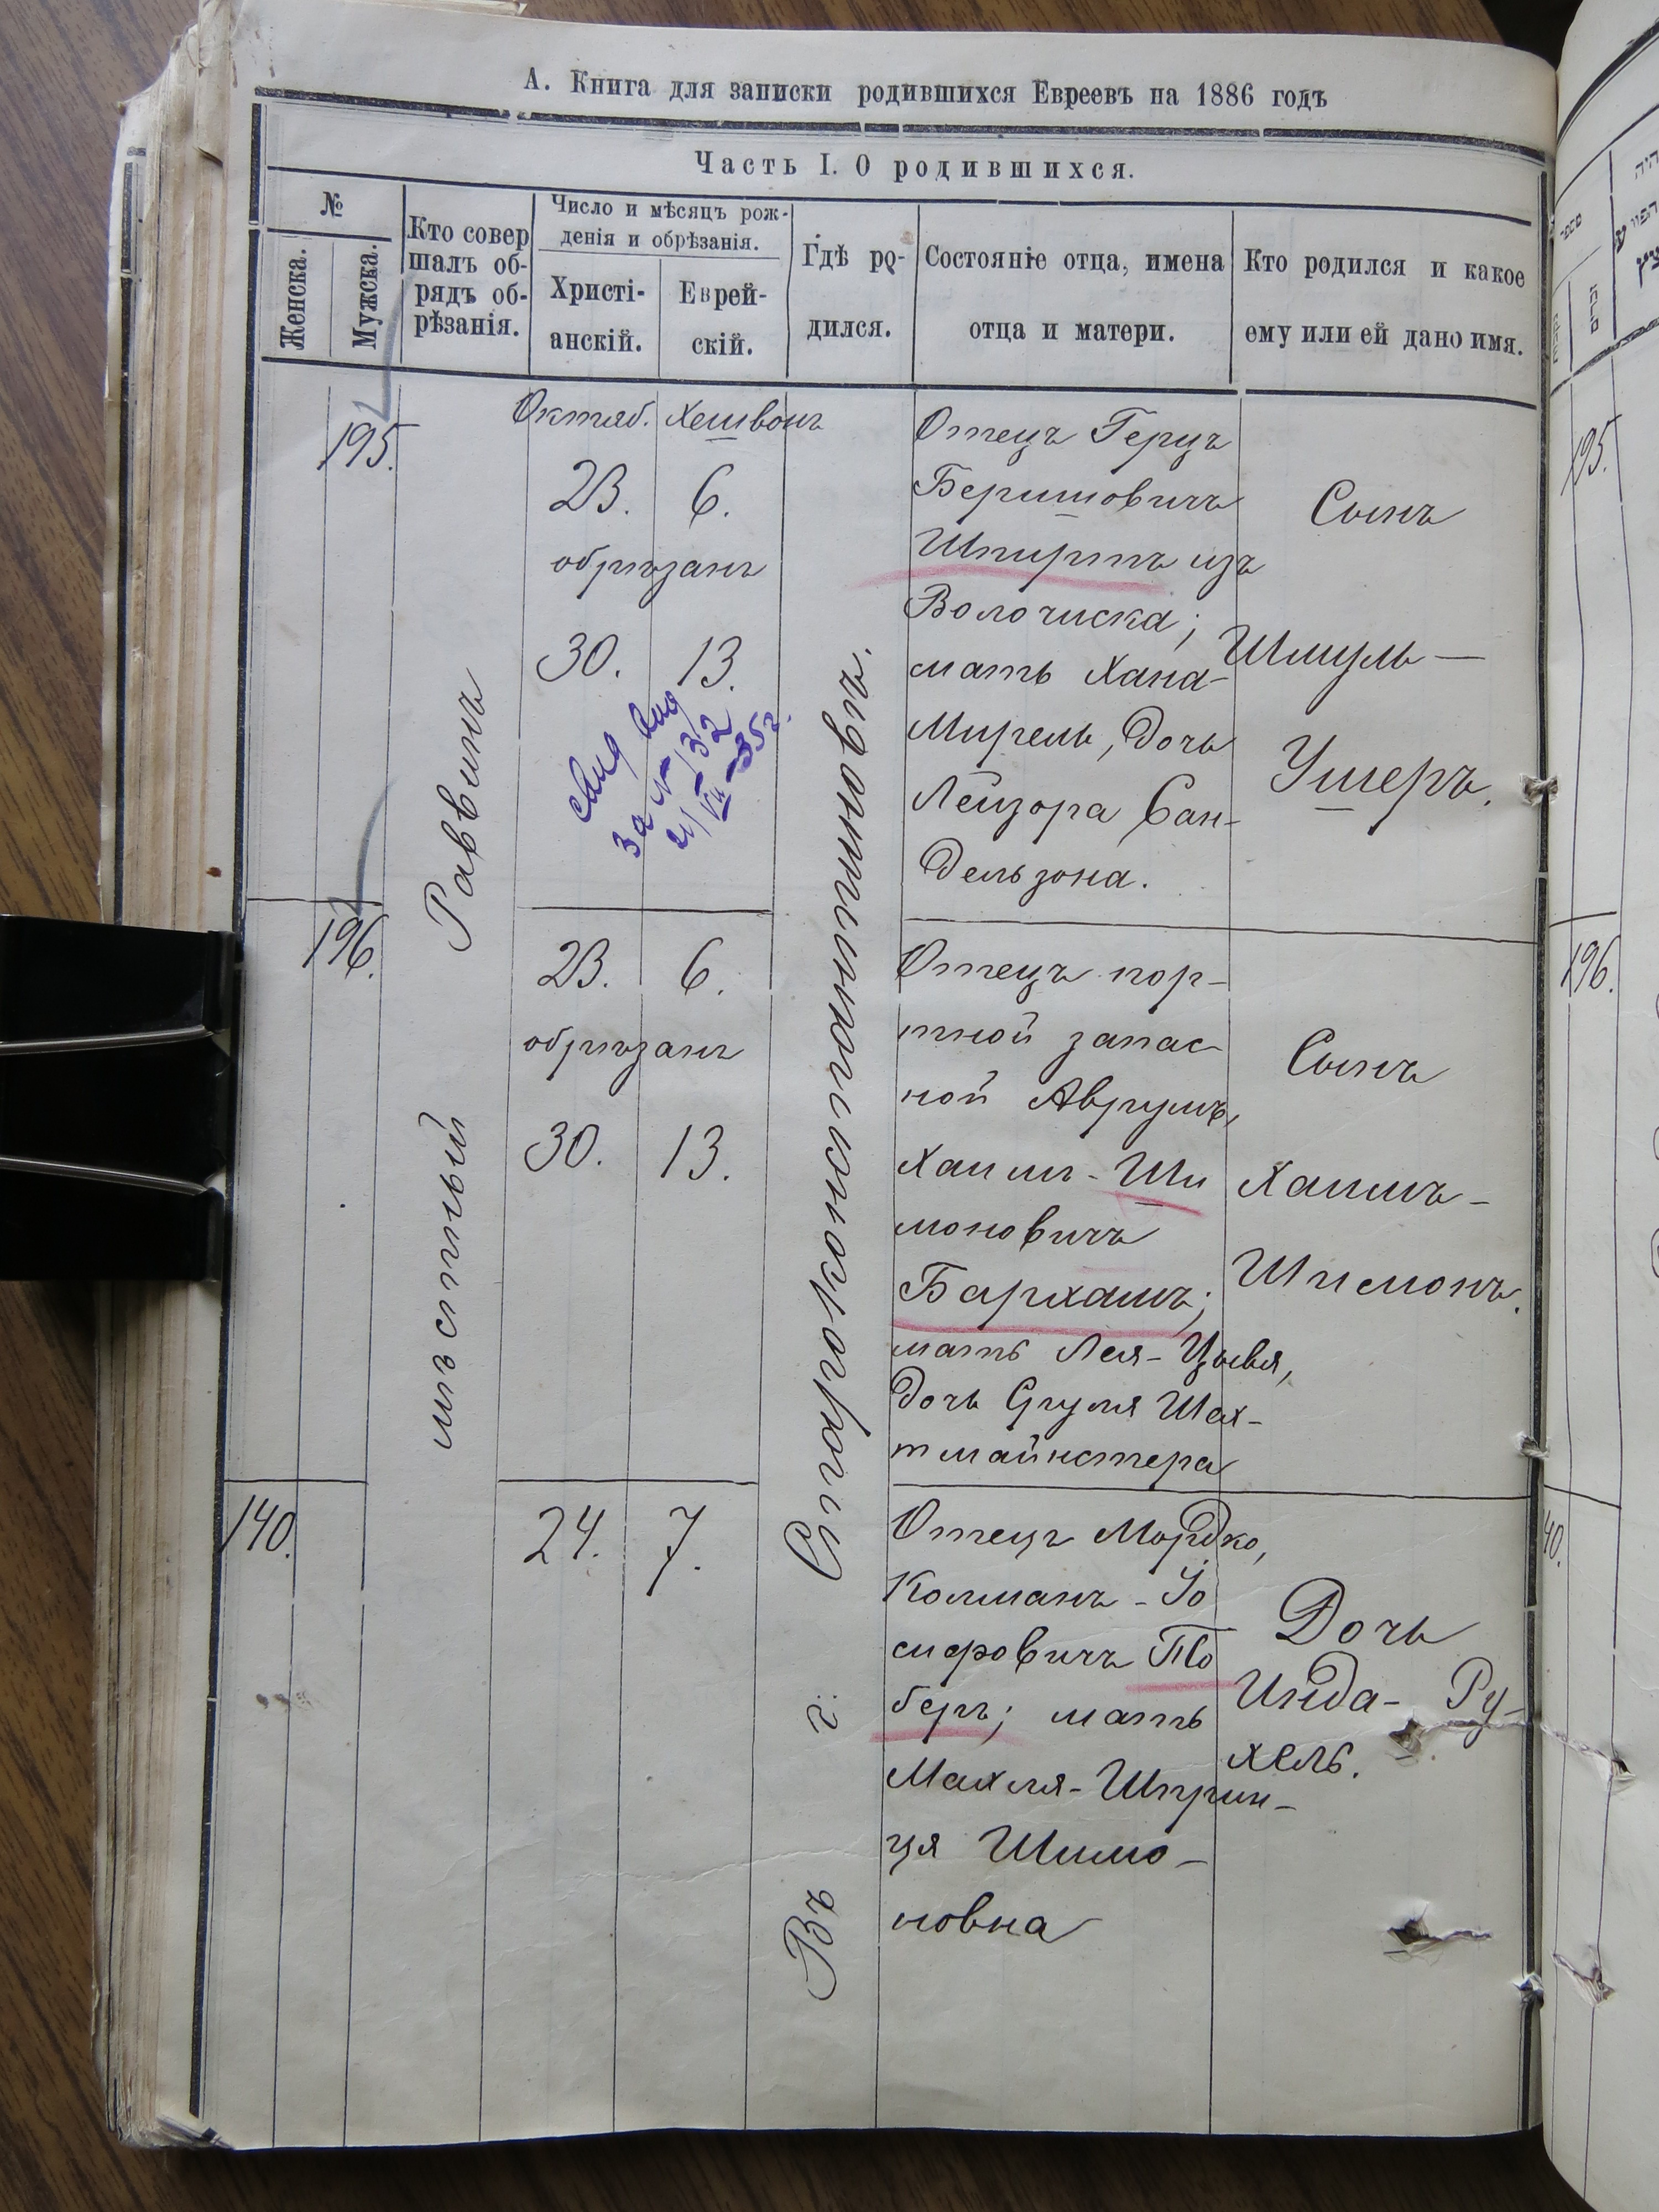 А. Книга для записки родившихся Евреевъ на 1886 годъ
Часть I. О родившихся.
№
Женска.
Мужска.
Кто совер
шалъ об-
рядъ об-
рѣзанія.
Число и мѣсяцъ рож-
денія и обрѣзанія.
Христі-
анскій.
Еврей-
скій.
Гдѣ ро-
дился.
Состояніе отца, имена
отца и матери.
Кто родился и какое
ему или ей дано имя.
195.
Раввинъ
мѣстный
Октяб. Хешвонъ
23. 6.
обрѣзанъ
30. 13.
за № 132
Въ г. Староконстантиновѣ.
Отецъ Герцъ
Беришовичъ
Шпиртъ изъ
Волочиска;
мать Хана-
Мирель, дочь
Лейзора Сан-
дельзона.
Сынъ
Шмуль-
Ушеръ.
196.
23. 6.
обрѣзанъ
30. 13.
Отецъ пор-
тной запас-
ной Аврумъ,
Хаимъ-Ши
моновичъ
Бархашъ;
мать Лея-Цывья,
дочь Сруля Шах-
тмайнстера
Сынъ
Хаимъ-
Шимонъ.
140.
24. 7.
Отецъ Мордко,
Колманъ-Іо
сифовичъ
беръ; мать
Махля-Шприн-
ця Шимо-
новна
Дочь
Инда-Ру-
хель.
195.
196.
40.